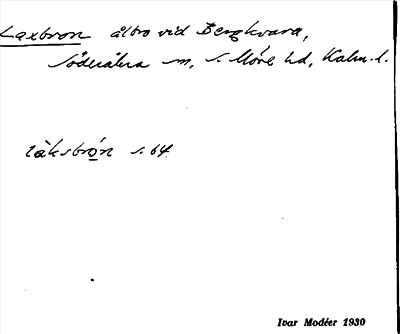 Laxbron ålbro vid Bergkvara,
Söderåkra sn, S. Möre hd, Kalm. l.
làksbrón s. 64.
Ivar Modéer 1930